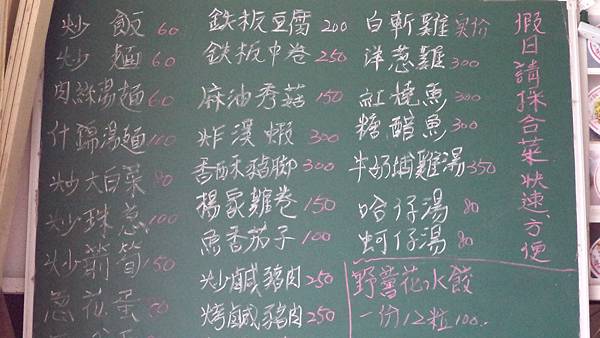 炒飯 60
炒麵 60
肉絲湯麵 60
什錦湯麵 100
炒大白菜 80
炒珠蔥 100
炒箭筍 150
蔥花蛋
鉄板豆腐 200
鉄板中卷 250
麻油秀菇 150
炸溪蝦 300
香酥豬脚 300
楊家雞卷 150
魚香茄子 100
炒鹹豬肉 250
烤鹹豬肉 250
白斬雞 時价
洋蔥雞 300
紅燒魚 300
糖醋魚 300
牛奶蜊雞湯 350
哈仔湯 80
蚵仔湯 80
野薑花水餃
一份12粒100.
假日請採合菜快速、方便